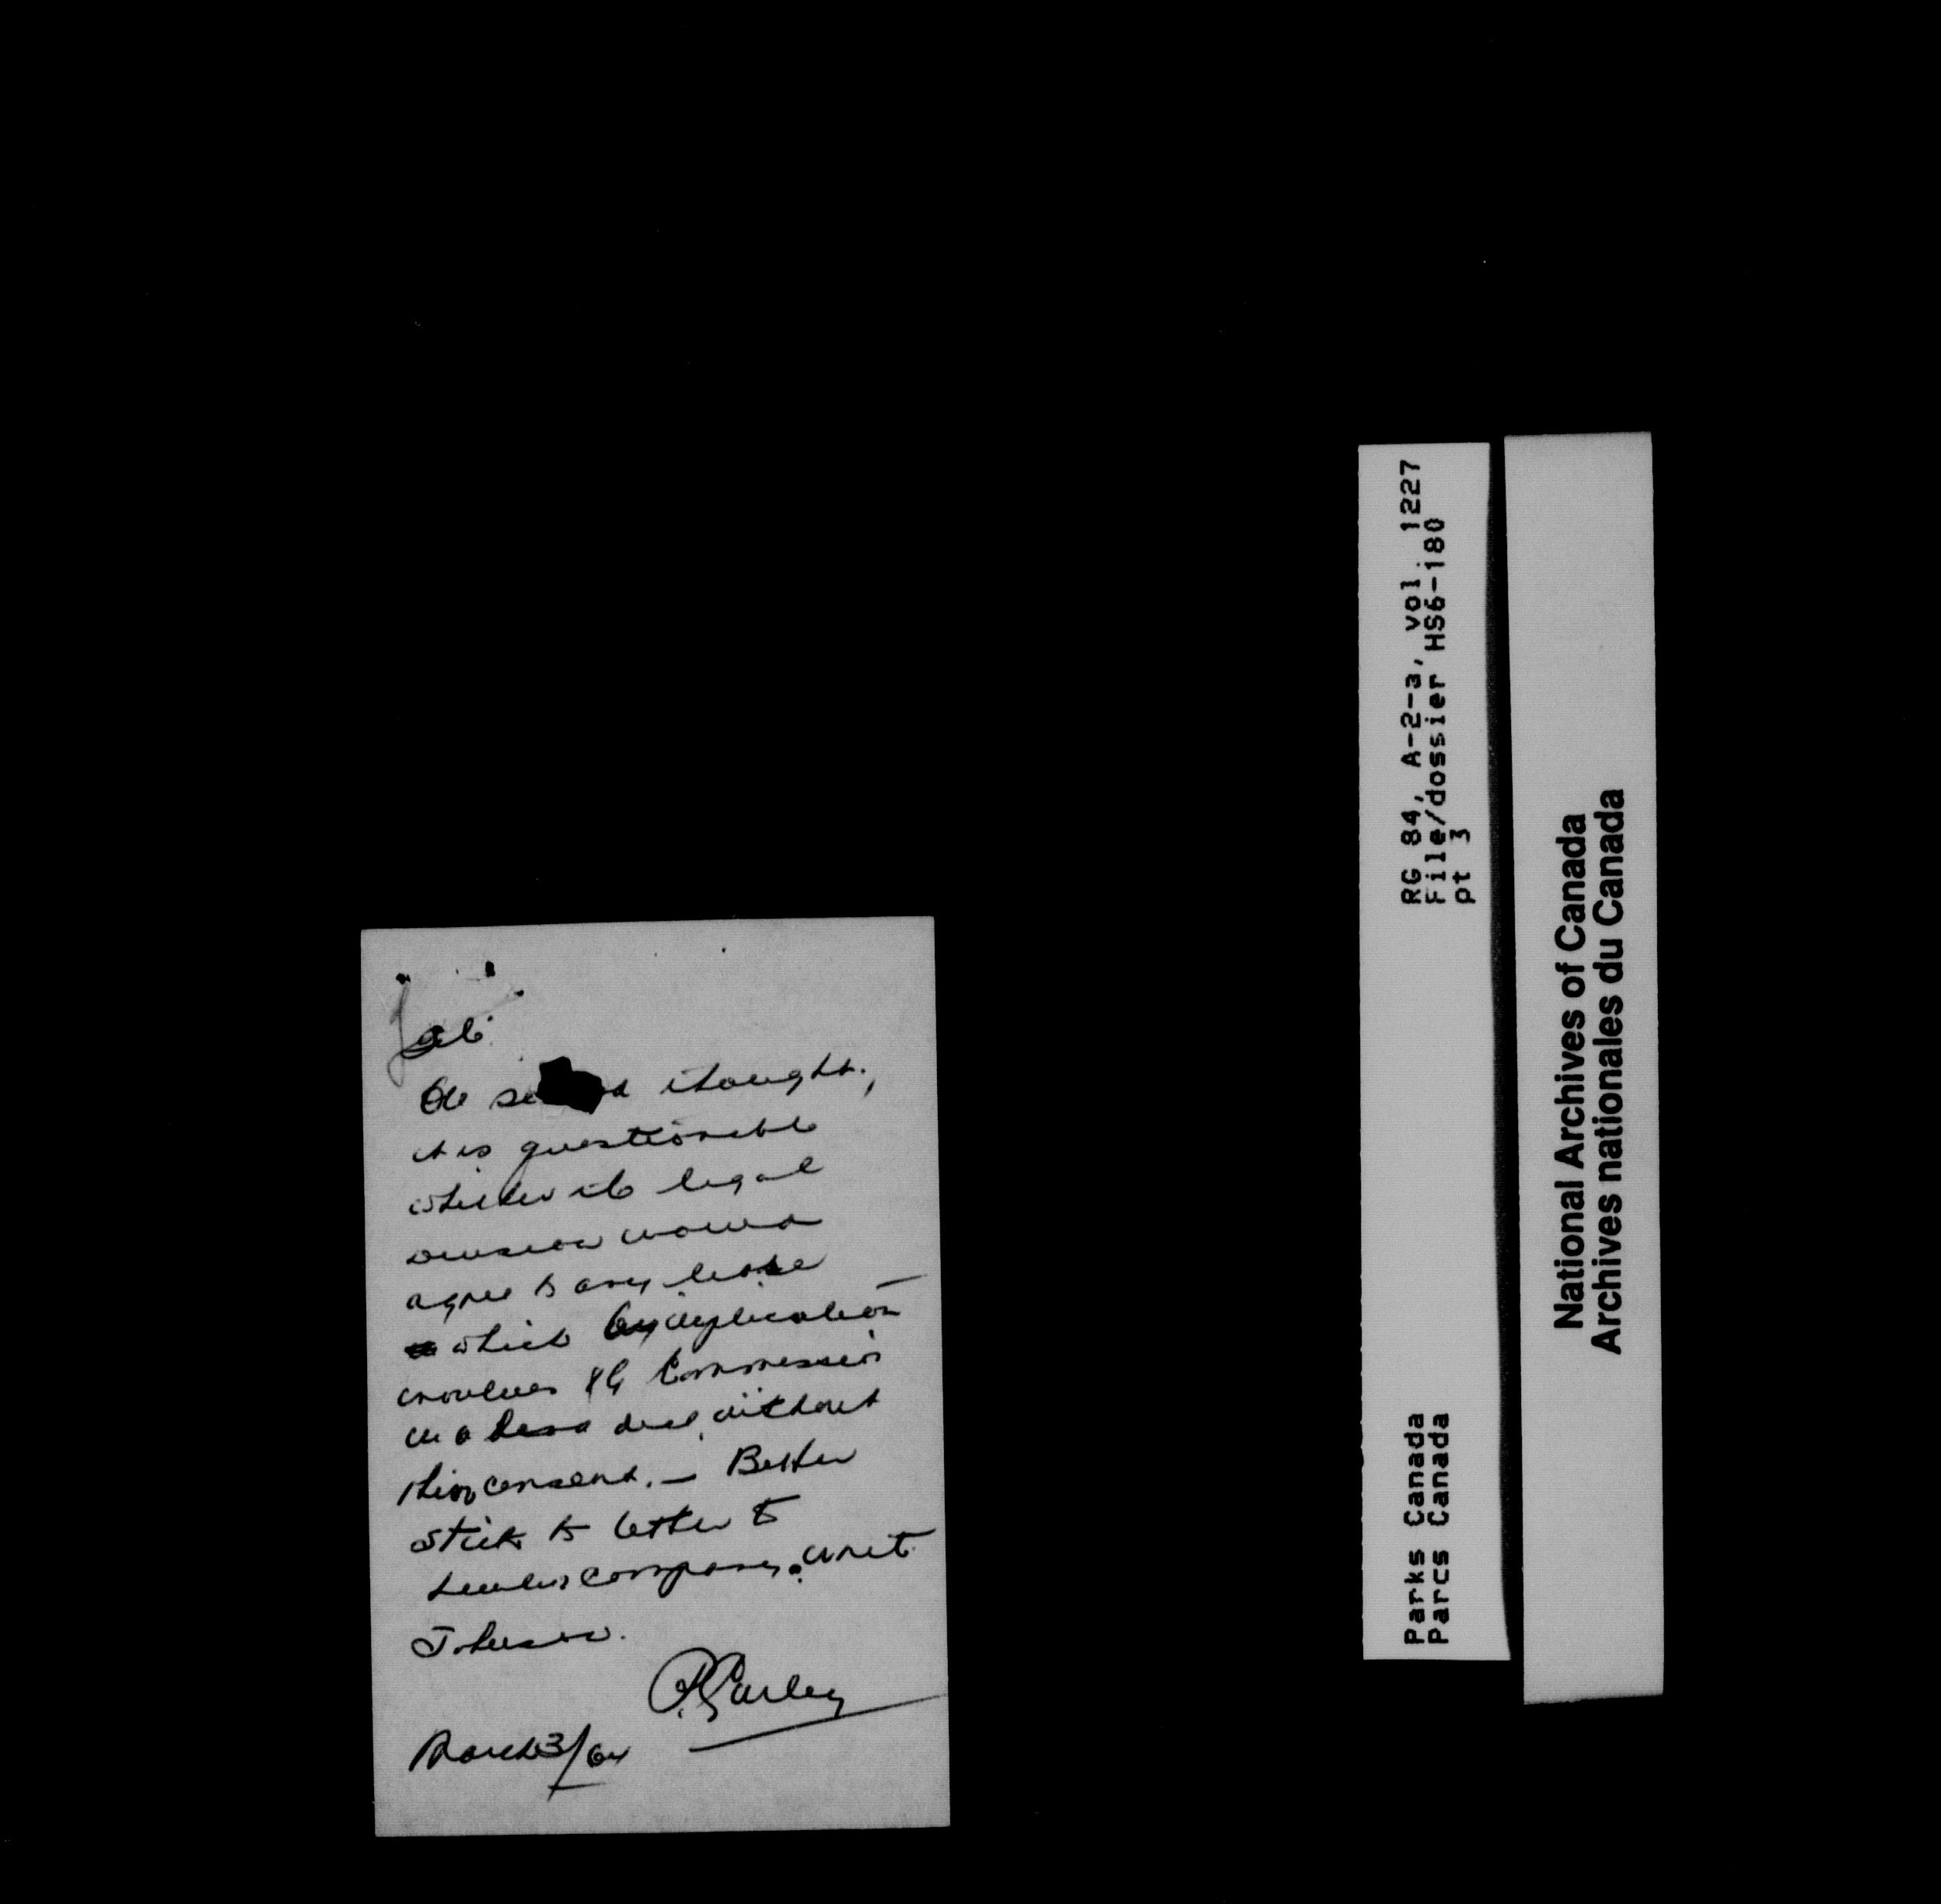 On second thought,
it is questionable
whether the legal
division would
agree to any lease
which by implication
involves the Commission
in a land deal without
their consent. — Better
stick to letter to
company.
Johnson.
March 3/64
RG 84, A-2-3, vol. 1227
File/dossier HS6-180
pt 3
Parks Canada
Parcs Canada
National Archives of Canada
Archives nationales du Canada